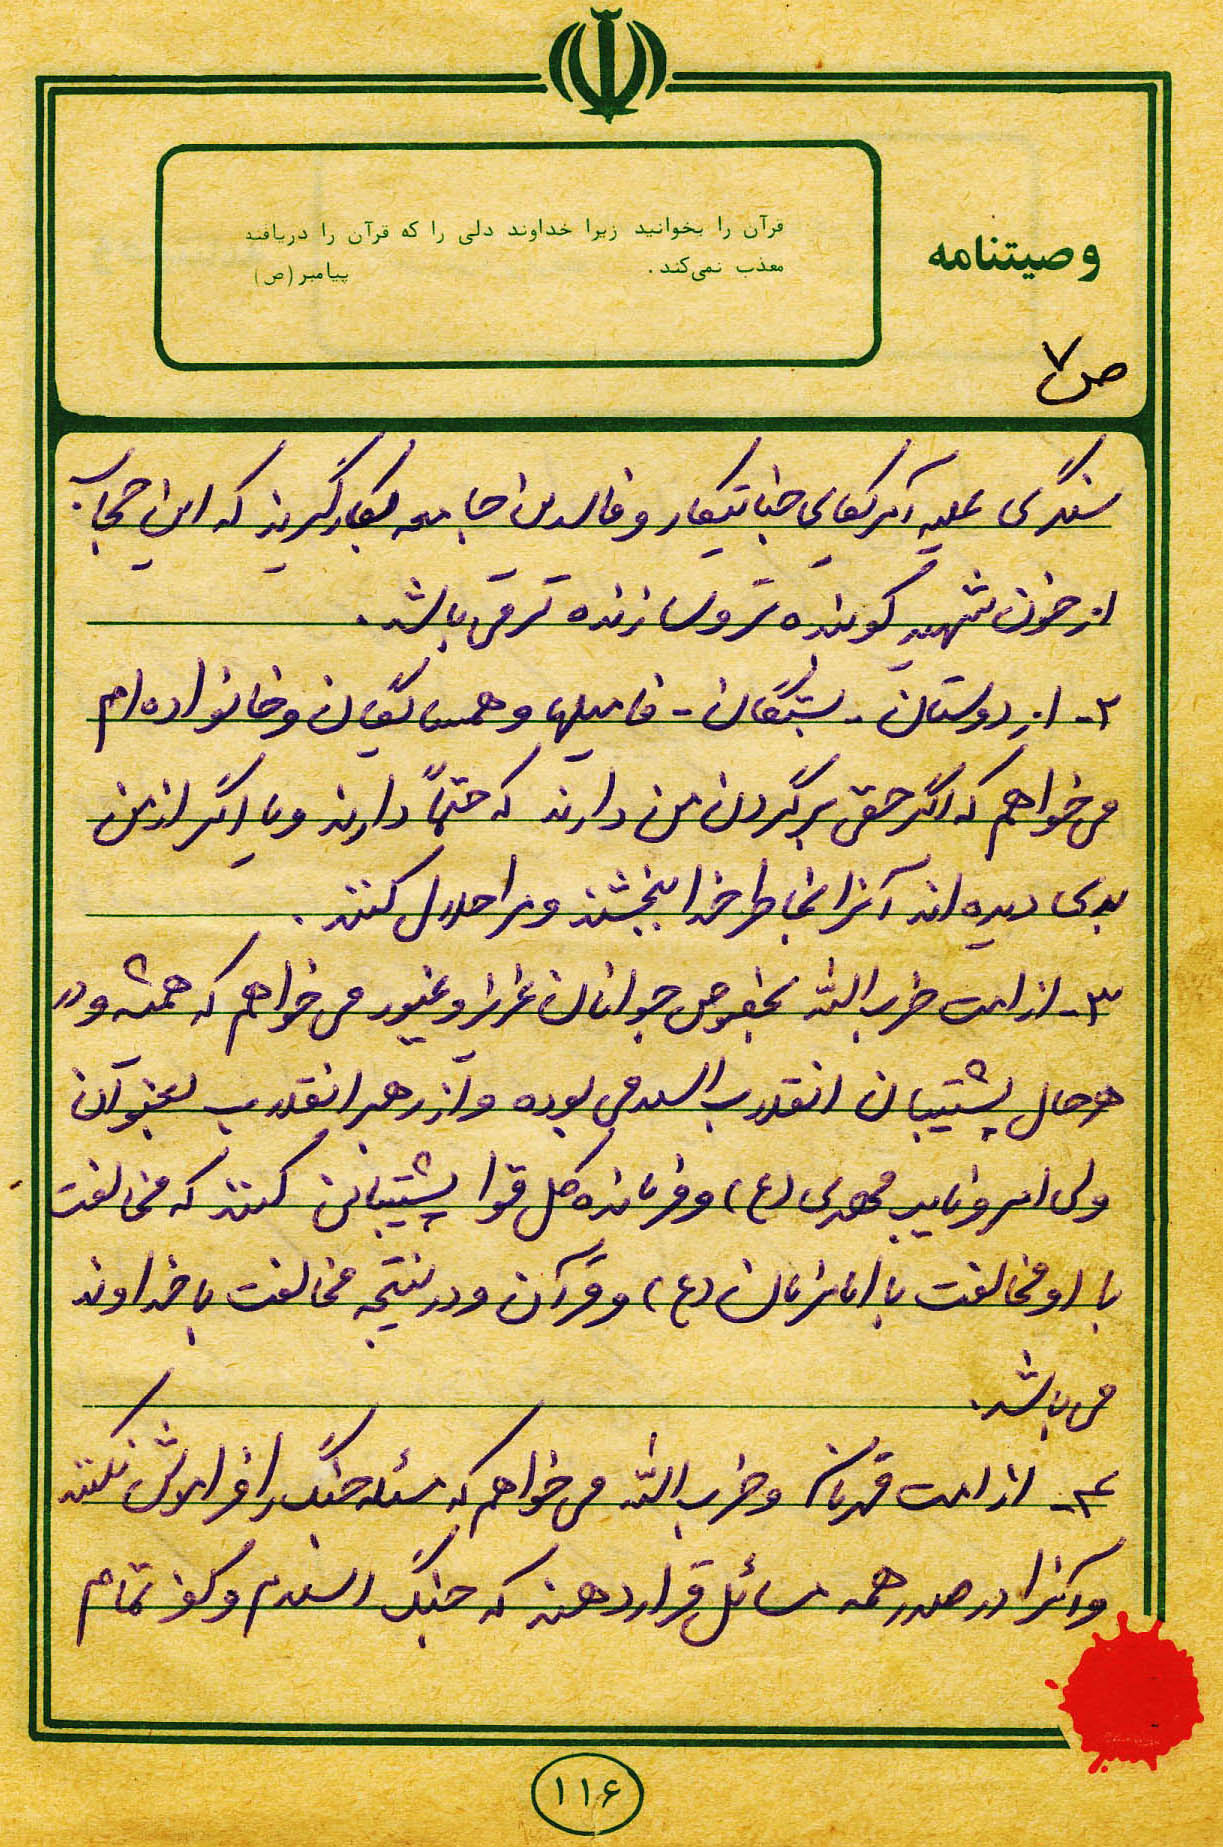 وصیتنامه
قرآن را بخوانید زیرا خداوند دلی را که قرآن را دریافته
معذب نمی‌کند. پیامبر (ص)
ص ۷
سنگری علیه آمریکای جنایتکار و فاسدین جامعه بکار گیرید که این حجاب
از خون شهید کوبنده‌تر و سازنده‌تر می باشد.
۲- از دوستان - بستگان - فامیلها و همسایگان و خانواده‌ام
می خواهم که اگر حقی بر گردن من دارند که حتماً دارند و یا اگر از من
بدی دیده‌اند آنرا بخاطر خدا ببخشند و مرا حلال کنند.
۳- از امت حزب الله بخصوص جوانان عزیز و غیور می خواهم که همیشه و در
هر حال پشتیبان انقلاب اسلامی بوده و از رهبر انقلاب بعنوان
ولی امر و نایب مهدی (ع) و فرمانده کل قوا پشتیبانی کنند که مخالفت
با او مخالفت با امام زمان (ع) و قرآن و در نتیجه مخالفت با خداوند
می باشد.
۴- از امت قهرمان و حزب الله می خواهم که مسئله جنگ را فراموش نکنند
و آنرا در صدر همه مسائل قرار دهند که جنگ اسلام و کفر تمام
۱۱۶